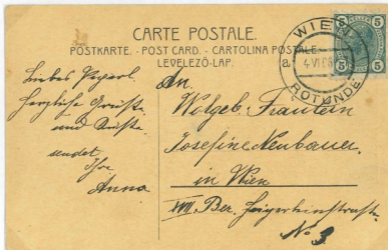 CARTE POSTALE.
POSTKARTE. - POST CARD. - CARTOLINA POSTALE
LEVELEZŐ-LAP.
WIEN
5 5
a 4 VI 06
ROTUNDE
5 5
Liebes Peperl.
Herzliche Grüße
und Küsse
sendet
Ihre
Anna
An
Wolgeb. Fräulein
Josefine Neubauer.
in Wien
Bez.
No 3.